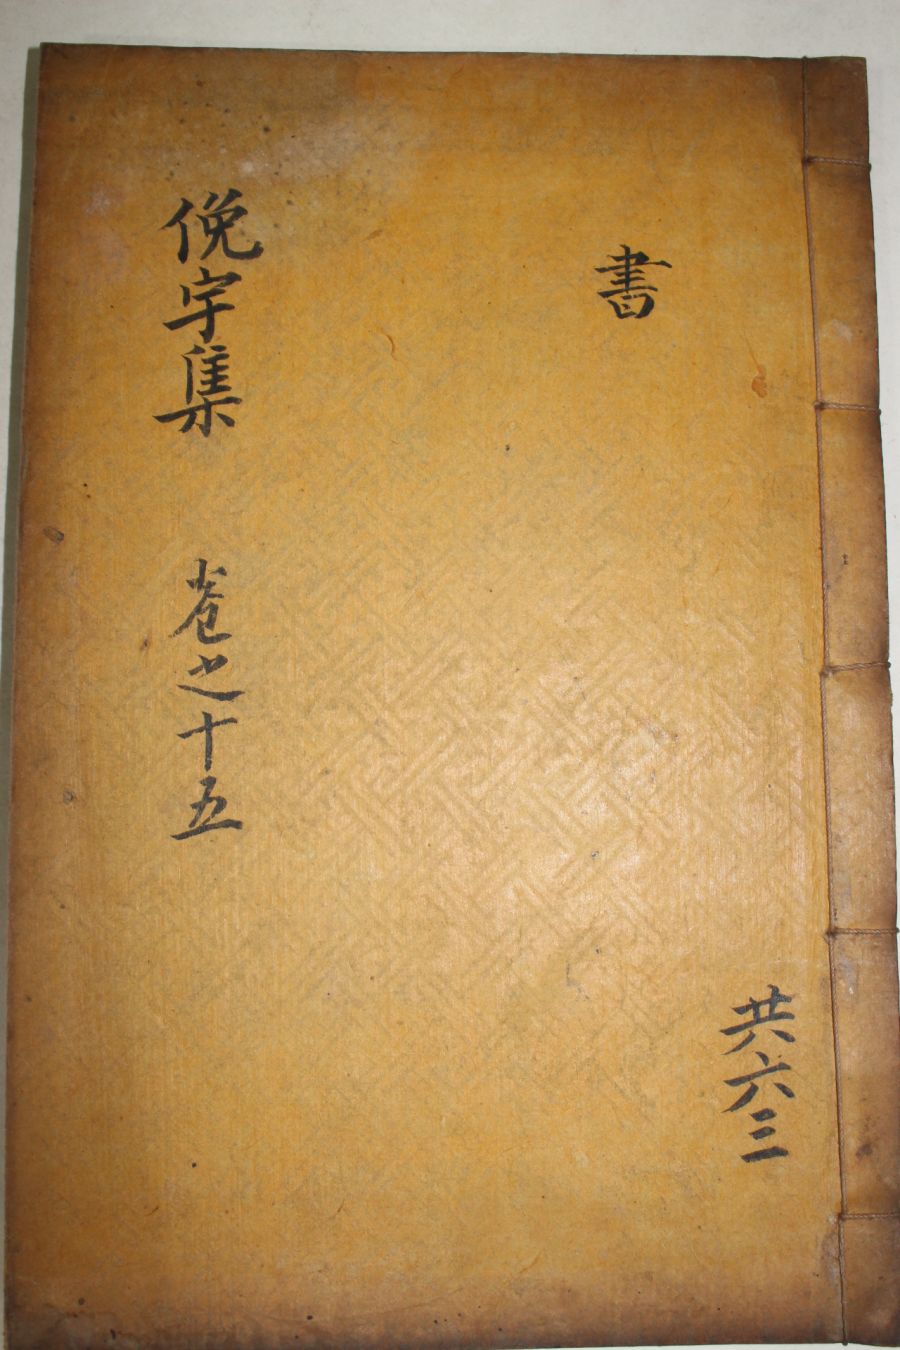 共六三
書
俛宇集 卷之十五